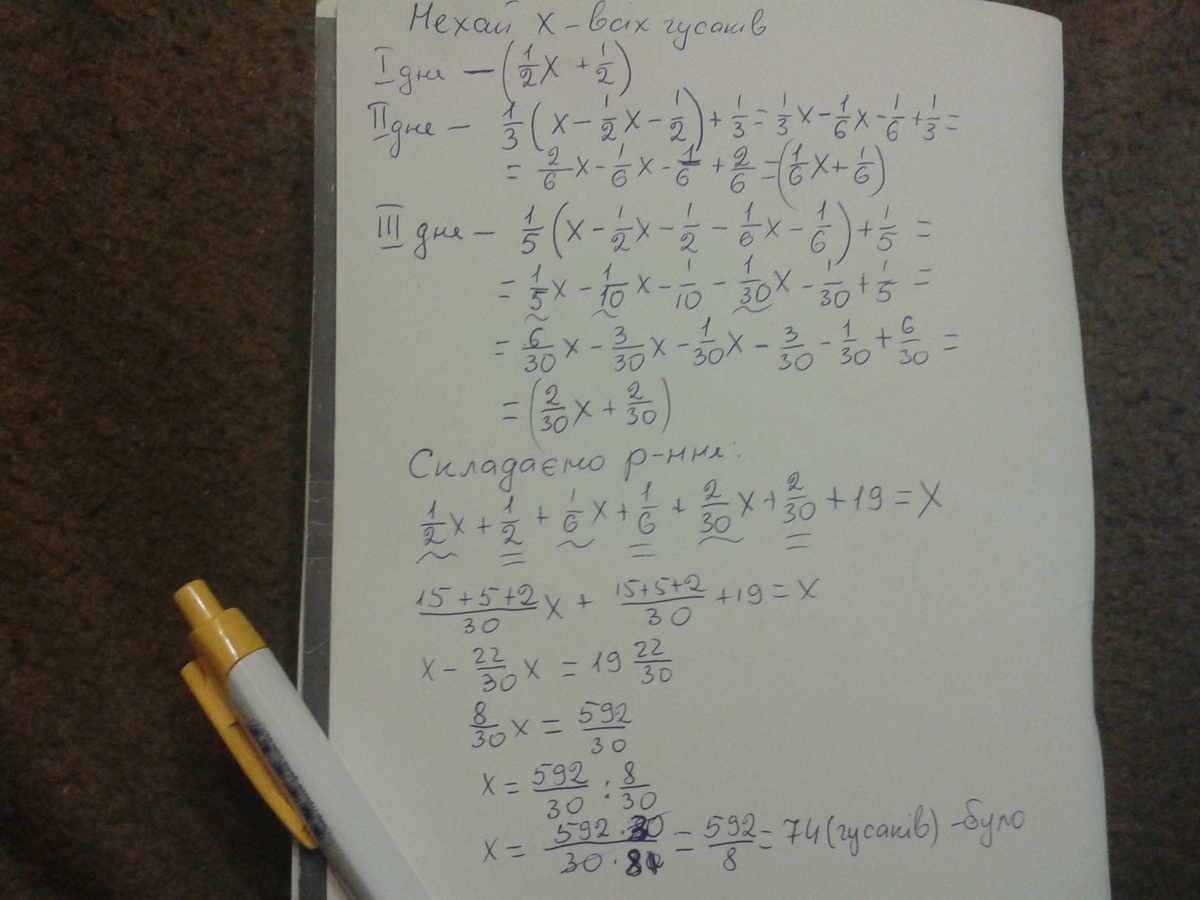 Нехай х - всіх гусаків
I дня — (1/2 x + 1/2)
II дня – 1/3 (x - 1/2 x - 1/2) + 1/3 = 1/3 x - 1/6 x - 1/6 + 1/3 =
= 2/6 x - 1/6 x - 1/6 + 2/6 = (1/6 x + 1/6)
III дня – 1/5 (x - 1/2 x - 1/2 - 1/6 x - 1/6) + 1/5 =
= 1/5 x - 1/10 x - 1/10 - 1/30 x - 1/30 + 1/5 =
= 6/30 x - 3/30 x - 1/30 x - 3/30 - 1/30 + 6/30 =
= (2/30 x + 2/30)
Складаємо р-ння:
1/2 x + 1/2 + 1/6 x + 1/6 + 2/30 x + 2/30 + 19 = x
15+5+2/30 x + 15+5+2/30 + 19 = x
x - 22/30 x = 19 22/30
8/30 x = 592/30
x = 592/30 : 8/30
x = 592·30/30·8 = 592/8 = 74 (гусаків) - було